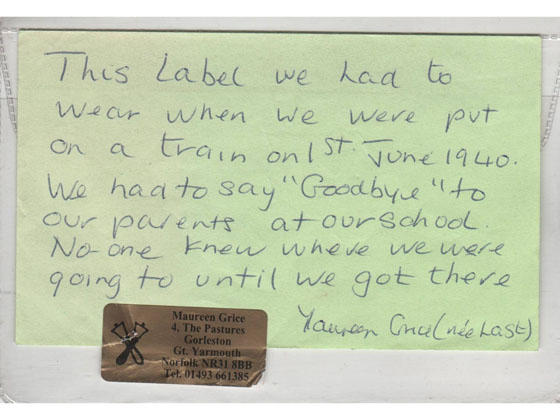 This Label we had to
wear when we were put
on a train on 1st. June 1940.
We had to say "Goodbye" to
our parents at our school.
No-one knew where we were
going to until we got there
Maureen Grice (née Last)
Maureen Grice
4, The Pastures
Gorleston
Gt. Yarmouth
Norfolk NR31 8BB
Tel. 01493 661385